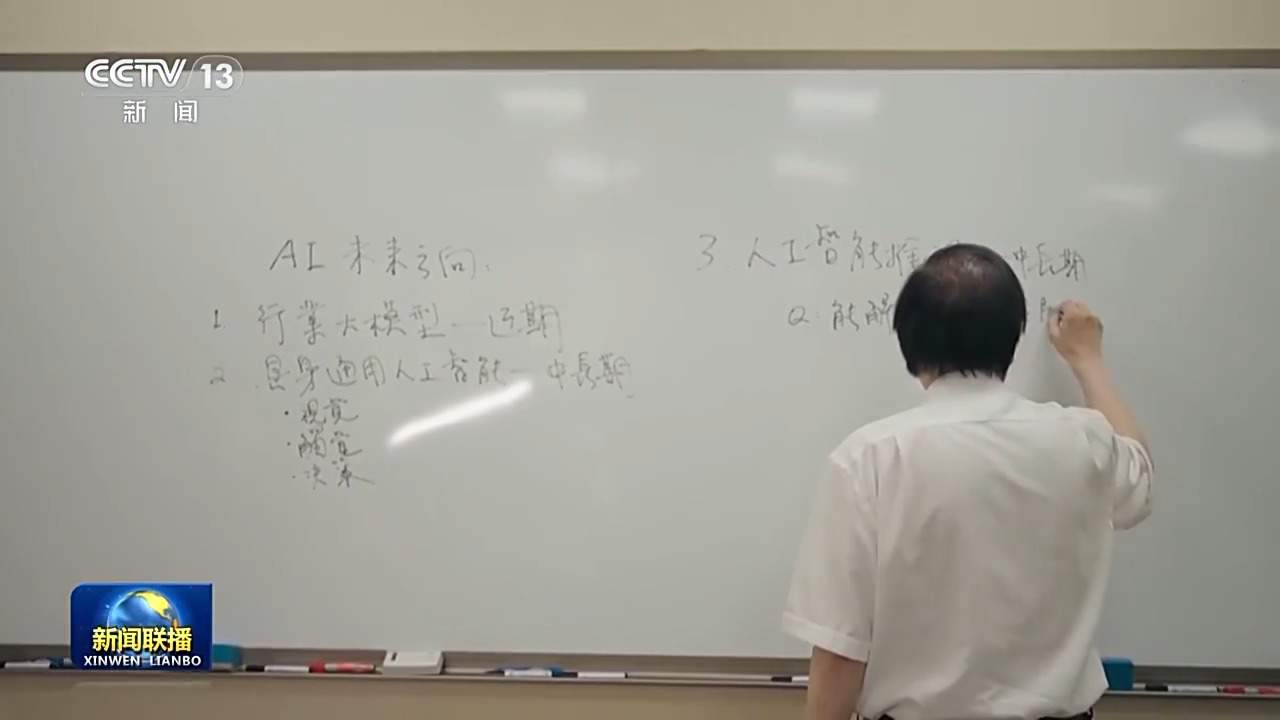 CCTV 13
新闻
AI 未来方向:
1. 行業大模型—近期
2 具身通用人工智能—中長期
· 視覚
· 觸覚
· 决策
3 人工智能推 中長期
Q: 能解
新闻联播
XINWEN LIANBO